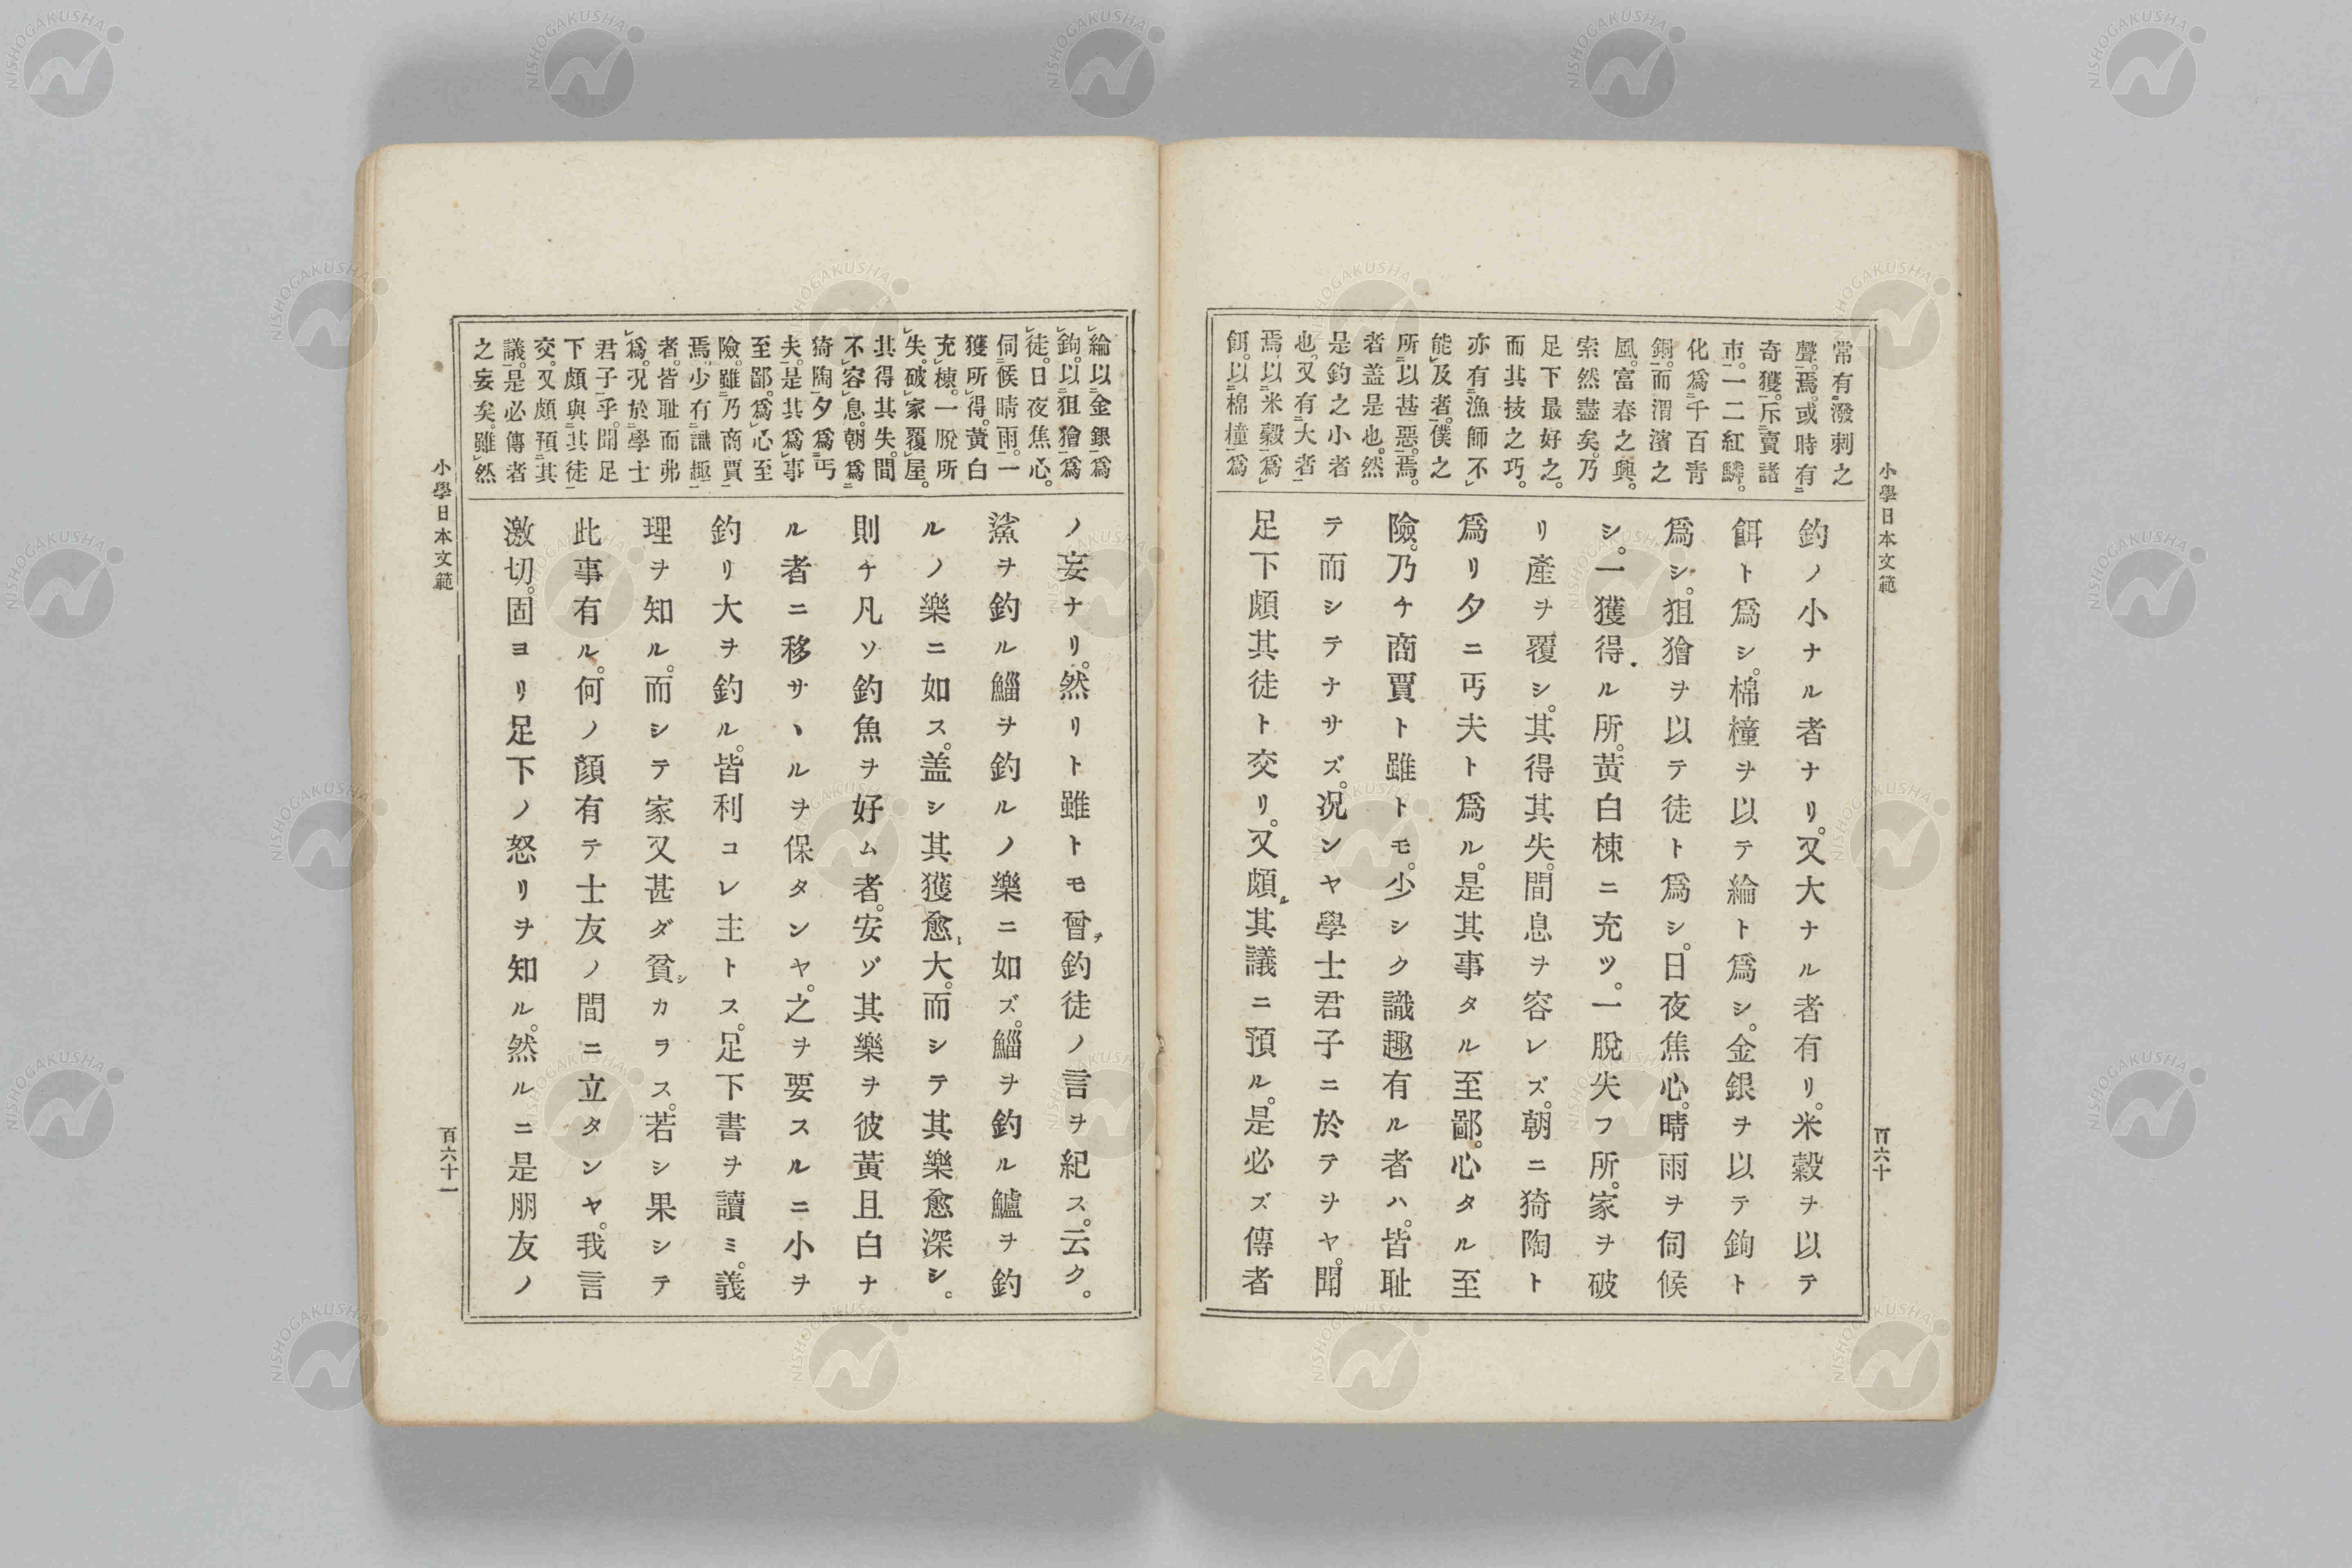 小學日本文範
百六十
常有潑剌之
聲焉。或時有
奇獲。斥賣諸
市。一二紅鱗。
化爲千百靑
銅。而渭濱之
風。富春之興。
索然盡矣。乃
足下最好之。
而其技之巧。
亦有漁師不
能及者。僕之
所以甚惡焉。
者盖是也。然
是釣之小者
也。又有大者
焉。以米穀爲
餌。以棉橦爲
釣ノ小ナル者ナリ。又大ナル者有リ。米穀ヲ以テ
餌ト爲シ。棉橦ヲ以テ綸ト爲シ。金銀ヲ以テ鉤ト
爲シ。狙獪ヲ以テ徒ト爲シ。日夜焦心。晴雨ヲ伺候
シ。一獲得ル所。黃白棟ニ充ツ。一脫失フ所。家ヲ破
リ產ヲ覆シ。其得其失。間息ヲ容レズ。朝ニ猗陶ト
爲リ夕ニ丐夫ト爲ル。是其事タル至鄙。心タル至
險。乃チ商賈ト雖トモ。少シク識趣有ル者ハ。皆耻
テ而シテナサズ。况ンヤ學士君子ニ於テヲヤ。聞
足下頗其徒ト交リ。又頗其議ニ預ル。是必ズ傳者
綸以金銀爲
鉤。以狙獪爲
徒。日夜焦心。
伺候晴雨。一
獲所得。黃白
充棟。一脫所
失。破家覆屋。
其得其失。間
不容息。朝爲
猗陶夕爲丐
夫。是其爲事
至鄙。爲心至
險。雖乃商賈
焉。少有識趣
者。皆耻而弗
爲。况於學士
君子乎。聞足
下頗與其徒
交。又頗預其
議。是必傳者
之妄矣。雖然
ノ妄ナリ。然リト雖トモ曾テ釣徒ノ言ヲ紀ス。云ク。
鯊ヲ釣ル鯔ヲ釣ルノ樂ニ如ズ。鯔ヲ釣ル鱸ヲ釣
ルノ樂ニ如ス。盖シ其獲愈大。而シテ其樂愈深シ。
則チ凡ソ釣魚ヲ好ム者。安ゾ其樂ヲ彼黃且白ナ
ル者ニ移サヽルヲ保タンヤ。之ヲ要スルニ小ヲ
釣リ大ヲ釣ル。皆利コレ主トス。足下書ヲ讀ミ。義
理ヲ知ル。而シテ家又甚ダ貧シカラス。若シ果シテ
此事有ル。何ノ顏有テ士友ノ間ニ立タンヤ。我言
激切。固ヨリ足下ノ怒リヲ知ル。然ルニ是朋友ノ
小學日本文範
百六十一